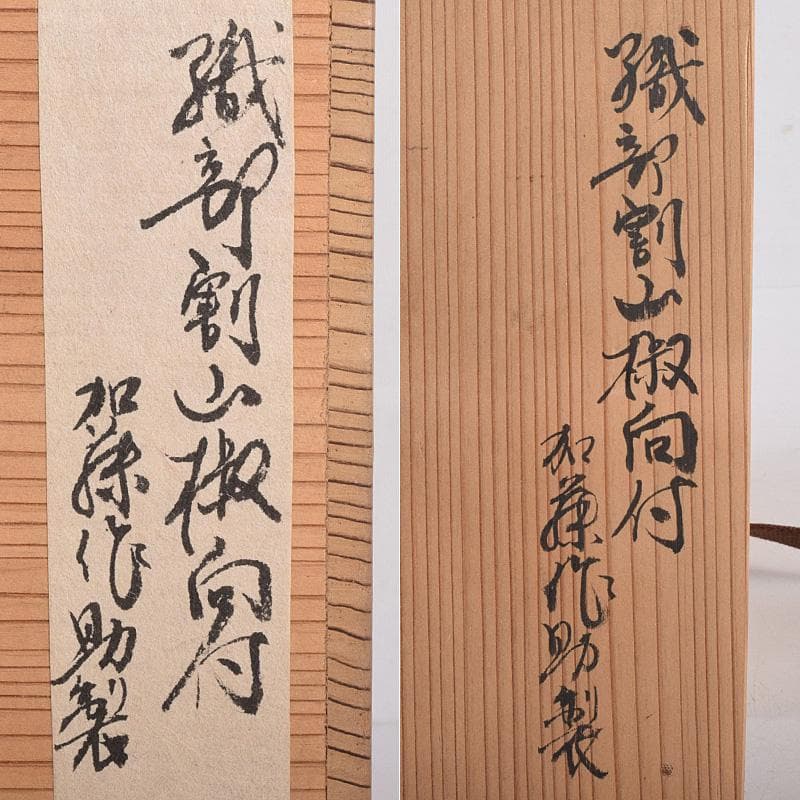 織部割山椒向付
加藤作助製
織部割山椒向付
加藤作助製